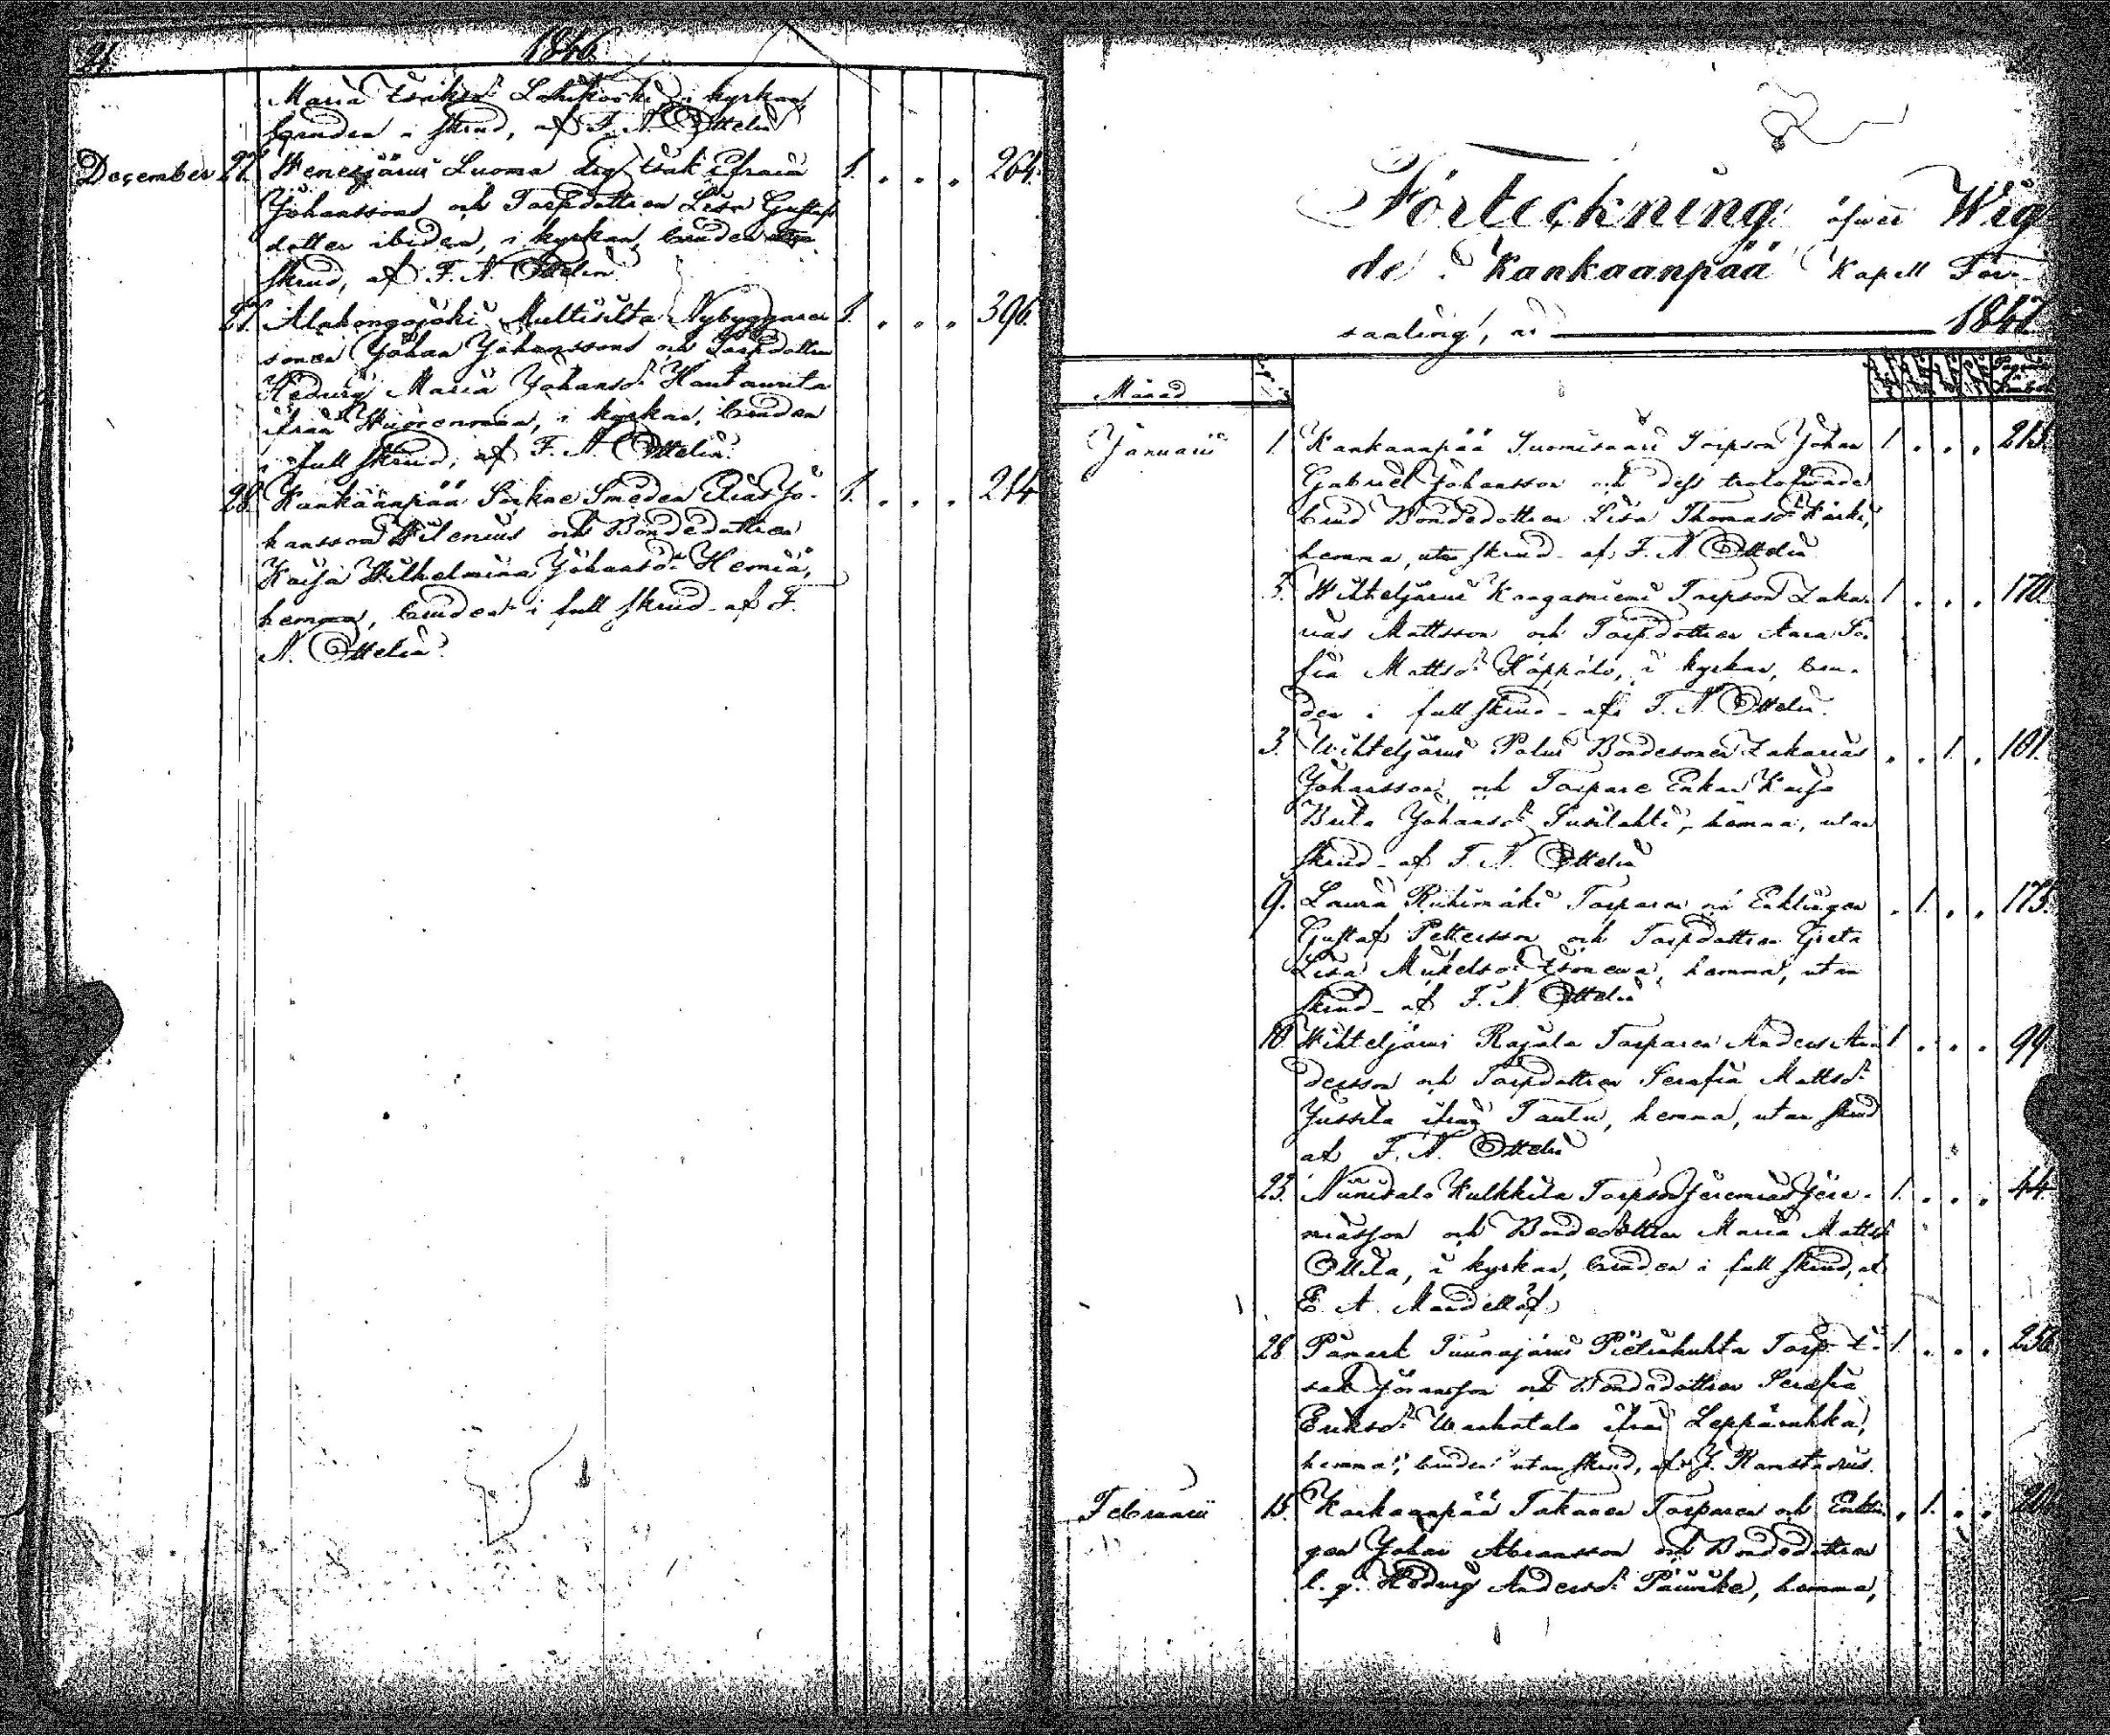 1846.
Maria Isaksd: Lohikoski, i kyrkan
bruden i skrud, af F. N. Ottelin
December 27. Wenesjärvi Luoma drg Isak Efraim 1. . . . 264.
Johansson och Torpdottren Lisa Gustafs
dotter ibidem, i kyrkan, bruden utan
skrud, af F. N. Ottelin
27. Alahongojoki Multisilta Nybyggare 1. . . . 396.
sonen Johan Johansson och Torpdottren
Hedvig Maria Johansd: Hautamita
ifrån Wuorenmaa, i kyrkan, bruden
i full skrud, af F. N. Ottelin.
28. Kankaanpää Smeden Elias Jo- 1. . . . 214
hansson Wilenius och Bondedottren
Kaisa Wilhelmina Johansd: Hemiä,
hemma, bruden i full skrud af F.
N. Ottelin.
Förteckning öfver Wig
de i Kankaanpää Kapell För-
samling, år 1847
Månad
Januarii 1. Kankaanpää Suomisaari Torpson Johan 1 . . . 213.
Gabriel Johansson och dess trolofwade
brud Bondedottren Lisa Thomasd: Kärki,
hemma, utan skrud af F. N. Ottelin
3. Wihteljärvi Kangasniemi Torpson Zaka- 1 . . . 170.
rias Mattsson och Torpdottren Anna So-
fia Mattsd: Käppälä, i kyrkan, bru-
den i full skrud af F. N. Ottelin.
3. Wihteljärvi Palus Bondesonen Zakarias . . 1. . 101.
Johansson och Torpare Enkan Kaisa
Brita Johansd: Susilahti, hemma, utan
skrud af F. N. Ottelin
9. Lauri Riihimäki Torparen och Enklingen . 1. . . 175.
Gustaf Pettersson och Torpdottren Greta
Lisa Mickelsd:, hemma, utan
skrud af F. N. Ottelin
10. Wihteljärvi Rajala Torparen Anders An- 1 . . . 99
dersson och Torpdottren Serafia Mattsd:
Jussila ifrån Taulu, hemma, utan skrud
af F. N. Ottelin
23. Niinisalo Kulkkila Torpson Jeremias Jere- 1. . . . 44.
miasson och Bondedottren Maria Mattsd:
Ottila, i kyrkan, bruden i full skrud, af
E. A. Mandellöf
28 Pånark Tuunajärvi Pietinhuhta Torp I- 1 . . . 256
sak Johansson och Bondedottren Serafia
Eriksd: ifrån Leppäruhka,
hemma, bruden utan skrud, af J. Ramstadius.
Februarii 15. Kankaanpää Torparen och Enklin- . 1. . .
gen Johan Abramsson och Bondedottren
l. q. Hedvig Andersd: hemma,